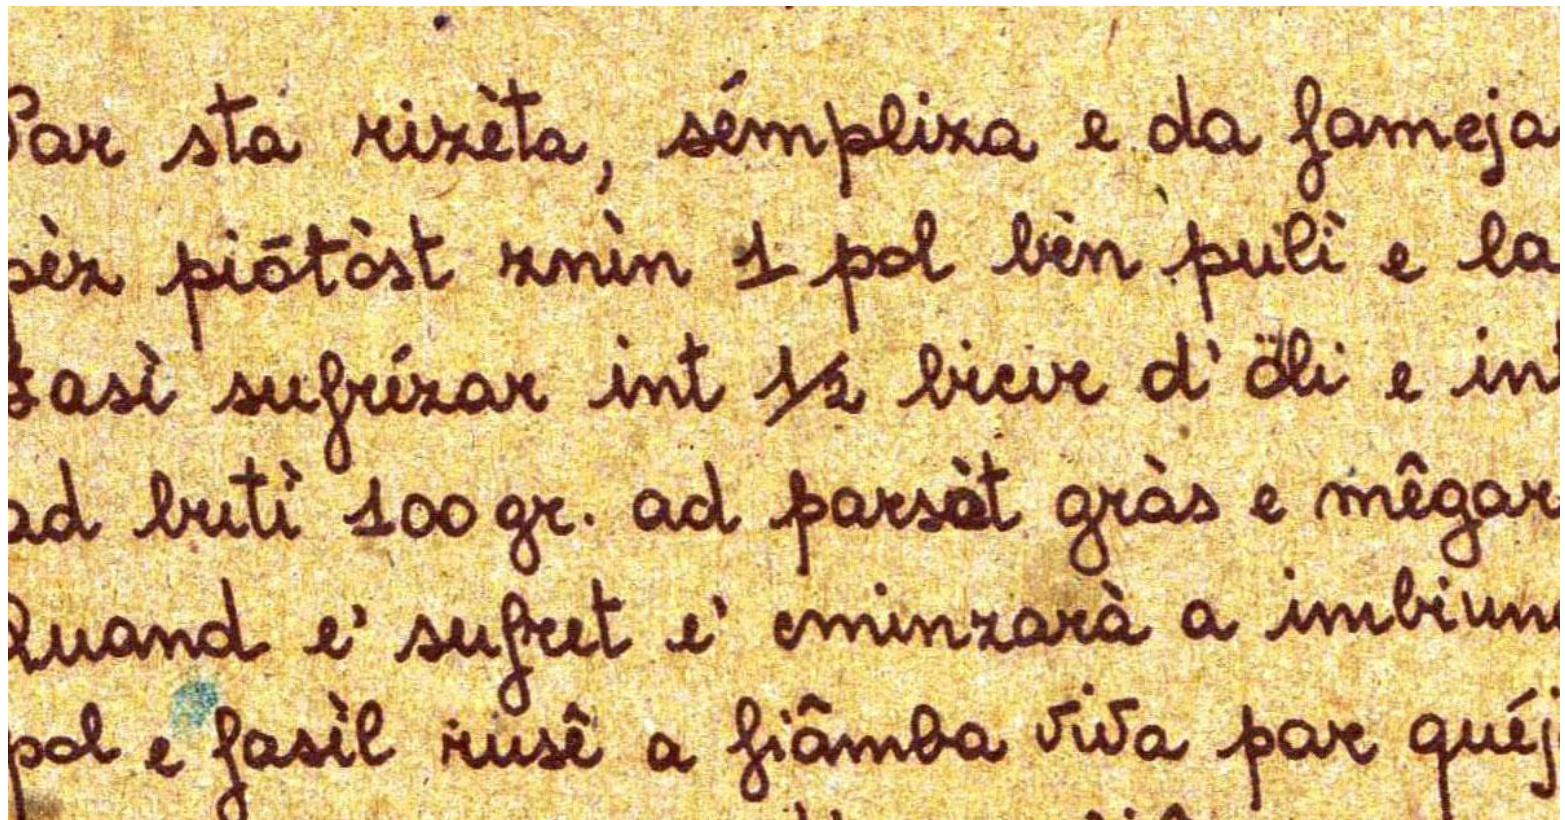 Par sta rizèta, sémpliza e da fameja
pèz piōtòst znìn 1 pol bèn pulì e la
fasì sufrízar int 1/2 bicir d' öli e int
ad butì 100 gr. ad parsòt gràs e mêgar
Quand e' sufret e' cminzarà a imbiun
pol e fasìl rusê a fiâmba viva par quéj